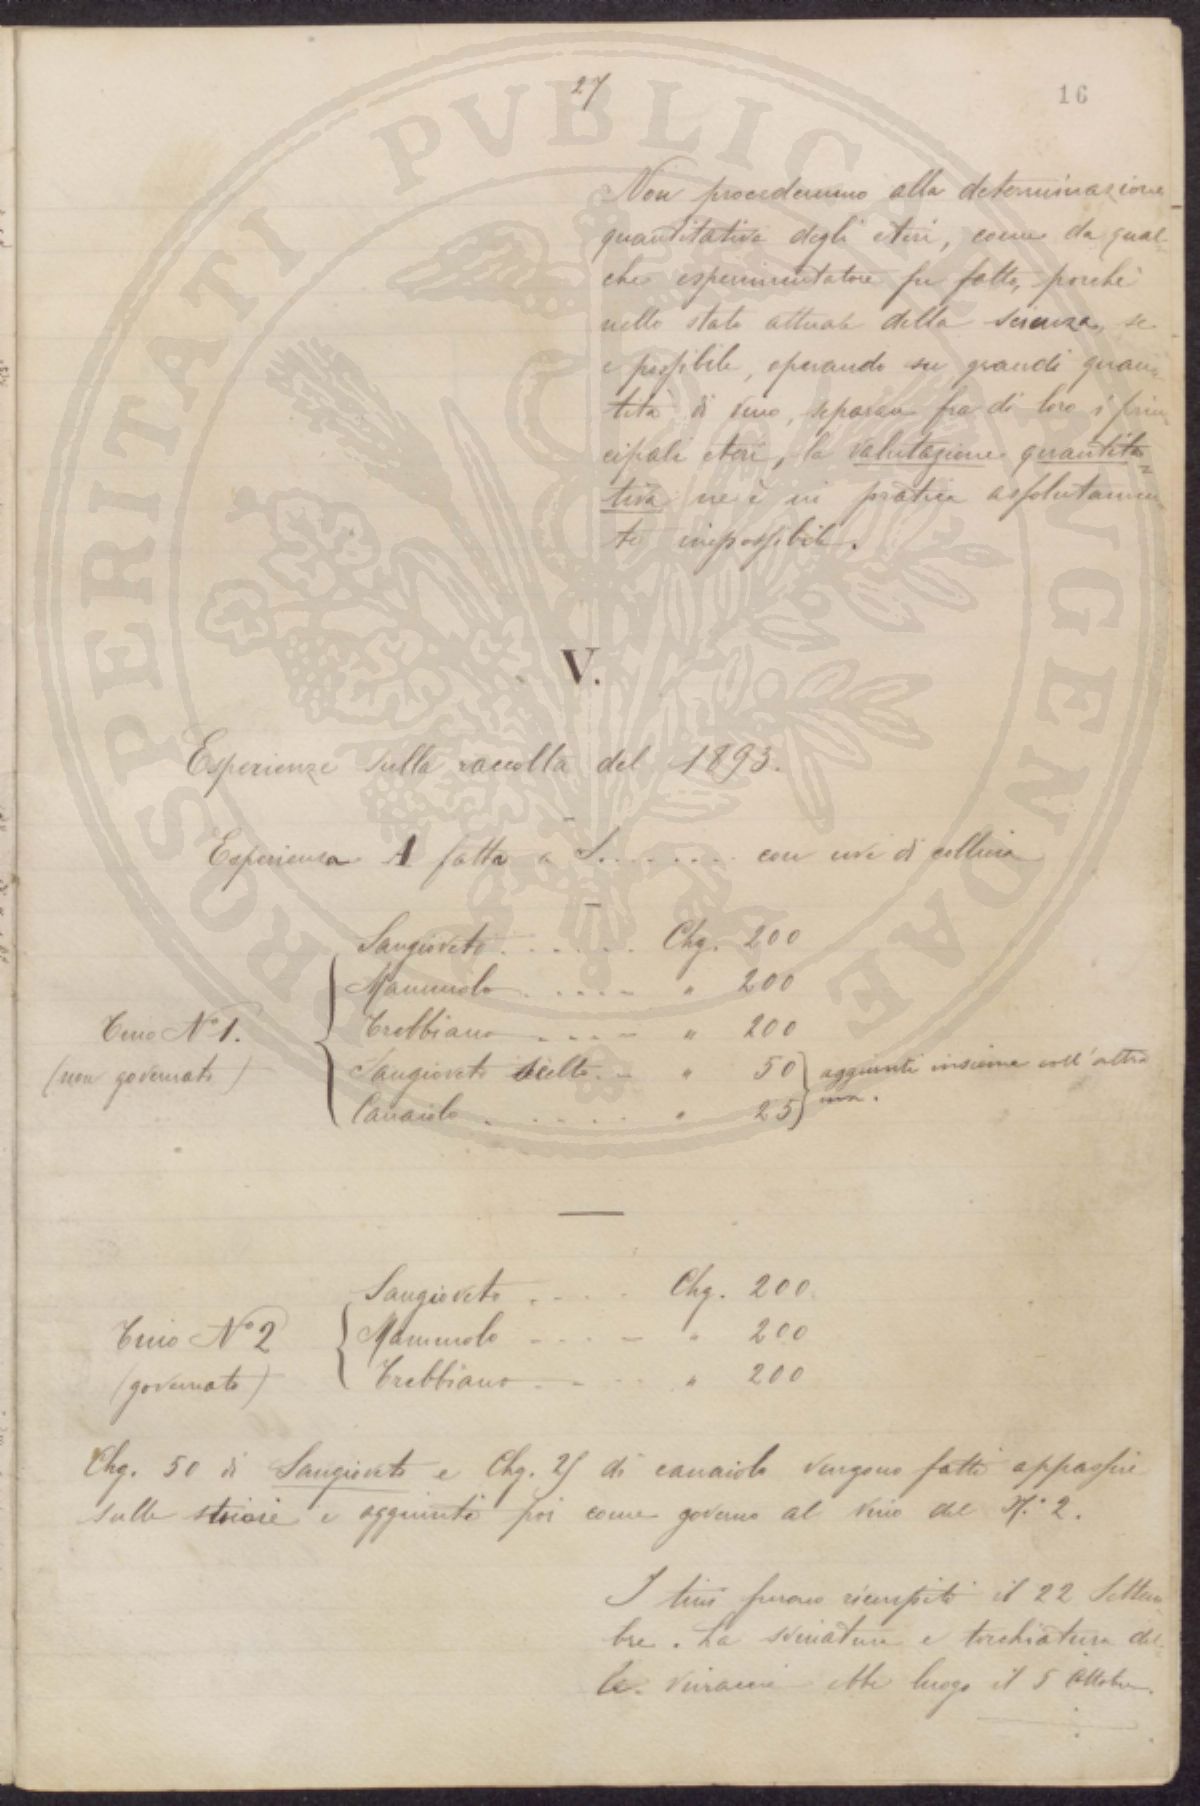 27
16
Non procedemmo alla determinazione
quantitativa degli eteri, come da qual-
che esperimentatore fu fatto, perchè
nello stato attuale della scienza, se
è possibile, operando su grandi quan-
tità di vino, separare fra di loro i prin-
cipali eteri, la valutazione quantita-
tiva ne è in pratica assolutamen-
te impossibile.
V.
Esperienze sulla raccolta del 1893.
Esperienza A fatta a S......... con uve di collina
Sangioveto ...... Chg. 200
Mammolo ..... " 200
Tino No 1. Trebbiano .... " 200
(non governato) Sangioveto scelto .. " 50 aggiunti insieme coll'altra
Canaiolo ...... " 25 uva.
Sangioveto .... Chg. 200
Tino No 2 Mammolo .... " 200
(governato) Trebbiano .... " 200
Chg. 50 di Sangioveto e Chg. 25 di canaiolo vengono fatti appassire
sulle stoioie e aggiunti poi come governo al vino del N.o 2.
I tini furono riempiti il 22 Settem
bre. La svinatura e torchiatura del-
le vinacce ebbe luogo il 5 Ottobre.
PROSPERITATI PVBLICAE AVGENDAE